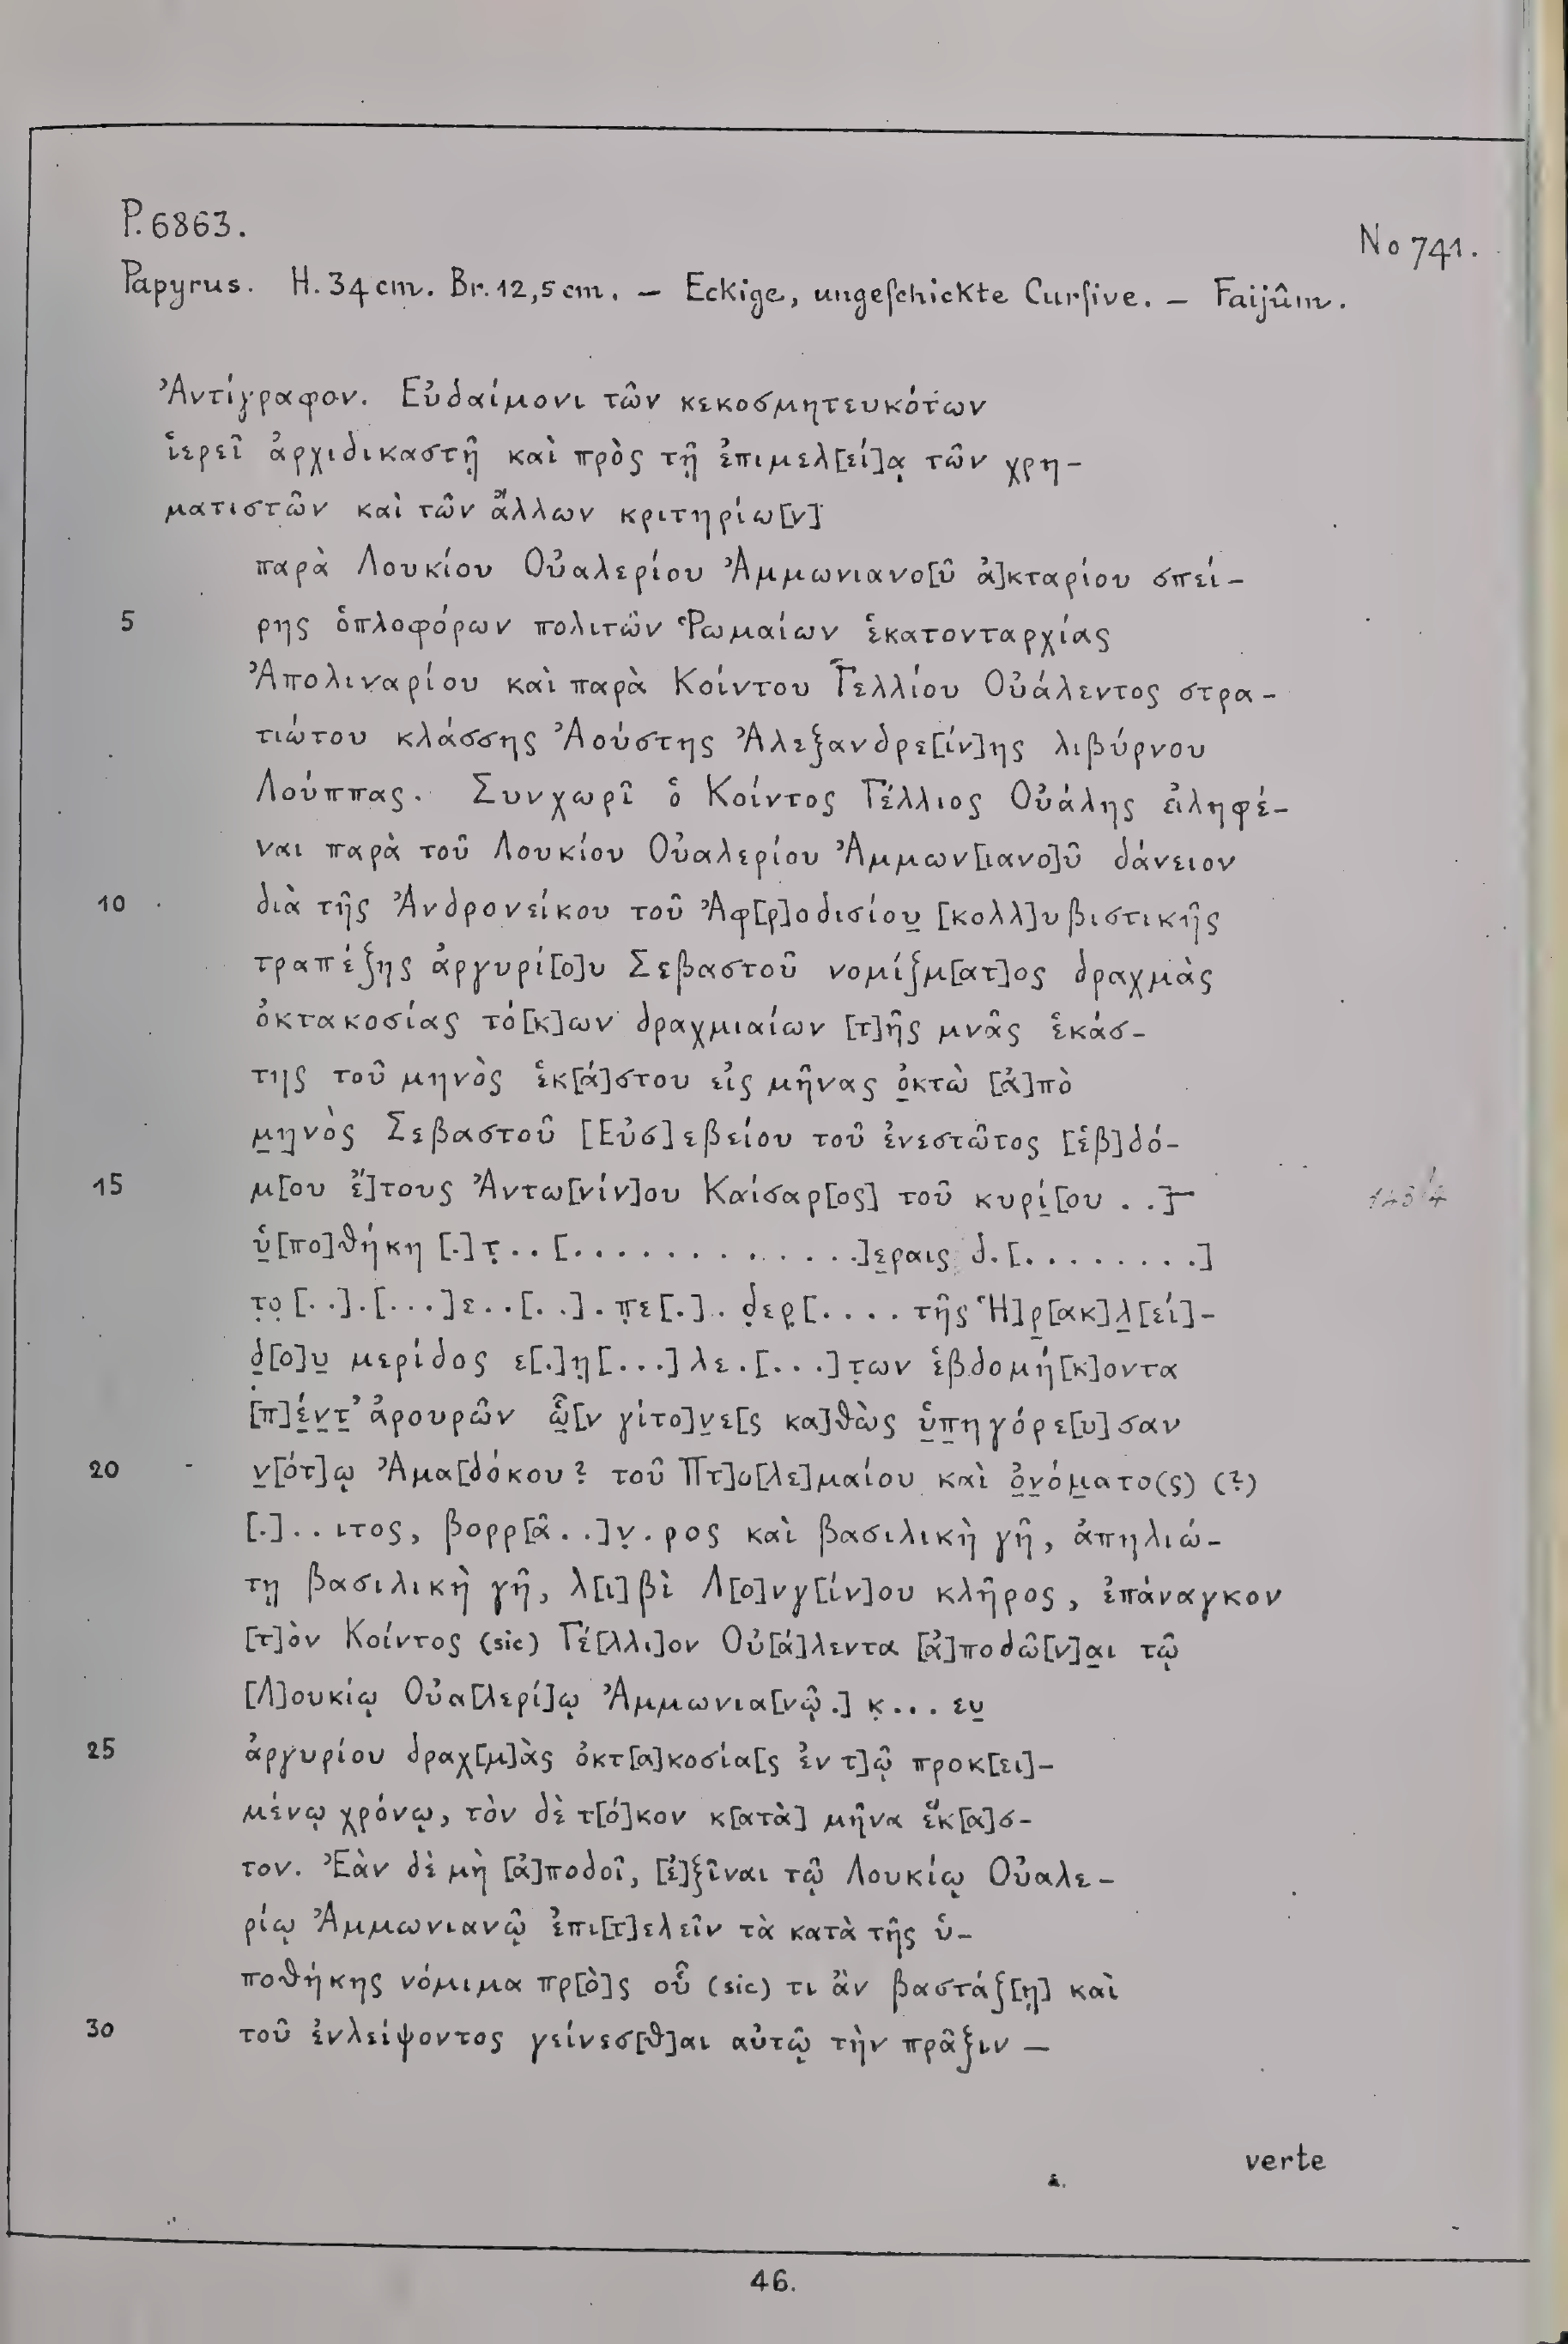 P. 6863.
No 741.
Papyrus. H. 34 cm. Br. 12,5 cm. — Eckige, ungeſchickte Curſive. — Faijûm.
Ἀντίγραφον. Εὐδαίμονι τῶν κεκοσμητευκότων
ἱερεῖ ἀρχιδικαστῇ καὶ πρὸς τῇ ἐπιμελ[εί]ᾳ τῶν χρη-
ματιστῶν καὶ τῶν ἄλλων κριτηρίω[ν]
παρὰ Λουκίου Οὐαλερίου Ἀμμωνιανο[ῦ ἀ]κταρίου σπεί-
5 ρης ὁπλοφόρων πολιτῶν Ῥωμαίων ἑκατονταρχίας
Ἀπολιναρίου καὶ παρὰ Κοίντου Γελλίου Οὐάλεντος στρα-
τιώτου κλάσσης Ἀούστης Ἀλεξανδρε[ίν]ης λιβύρνου
Λούππας. Συνχωρῖ ὁ Κοίντος Γέλλιος Οὐάλης εἰληφέ-
ναι παρὰ τοῦ Λουκίου Οὐαλερίου Ἀμμων[ιανο]ῦ δάνειον
10 διὰ τῆς Ἀνδρονείκου τοῦ Ἀφ[ρ]οδισίου̲ [κολλ]υβιστικῆς
τραπέζης ἀργυρί[ο]υ Σεβαστοῦ νομίζμ[ατ]ος δραχμὰς
ὀκτακοσίας τό[κ]ων δραχμιαίων [τ]ῆς μνᾶς ἑκάσ-
της τοῦ μηνὸς ἑκ[ά]στου εἰς μῆνας ὀ̲κτὼ [ἀ]πὸ
μ̲η̲νὸς Σεβαστοῦ [Εὐσ]εβείου τοῦ ἐνεστῶτος [ἑβ]δό-
15 μ[ου ἔ]τους Ἀντω[νίν]ου Καίσαρ[ος] τοῦ κυρί̲[ου . .]
ὑ̲[πο]θήκη [.]τ̣ . . [. . . . . . . . . . . . .]ε̲ραις δ . [. . . . . . . .]
τ̣ο̣[. .] . [. . .]ε . . [. .] . π̣ε[.] . . δ̣ερ̣[. . . . τῆς Ἡ]ρ̲[ακ]λ̲[εί]-
δ̲[ο]υ̲ μερίδος ε[.]η̣[. . .]λε . [. . .]τ̣ων ἑβδομή[κ]οντα
[π]έ̲ν̲τ̲’ ἀρουρῶν ὧ̲[ν γίτο]ν̲ε[ς κα]θὼς ὑ̲π̲ηγόρε[υ]σαν
20 ν̲[ότ]ῳ Ἀμα[δόκου? τοῦ Πτ]ο[λε]μαίου καὶ ὀ̲ν̲όμ̲ατο(ς) (?)
[.] . . ιτος, βορρ[ᾶ . .]ν̣ . ρος καὶ βασιλικὴ γῆ, ἀπηλιώ-
τῃ βασιλικὴ γῆ, λ[ι]βὶ Λ[ο]νγ[ίν]ου κλῆρος, ἐπάναγκον
[τ]ὸν Κοίντος (sic) Γέ[λλι]ον Οὐ[ά]λεντα [ἀ]ποδῶ[ν]α̲ι τῷ
[Λ]ουκίῳ Οὐα[λερί]ῳ Ἀμμωνια[νῷ .] κ̣ . . . ευ̲
25 ἀργυρίου δραχ[μ]ὰς ὀκτ[α]κοσία[ς ἐν τ]ῷ προκ[ει]-
μένῳ χρόνῳ, τὸν δὲ τ[ό]κον κ[ατὰ] μῆνα ἕκ[α]σ-
τον. Ἐὰν δὲ μὴ [ἀ]ποδοῖ, [ἐ]ξῖναι τῷ Λουκίῳ Οὐαλε-
ρίῳ Ἀμμωνιανῷ ἐπι[τ]ελεῖν τὰ κατὰ τῆς ὑ-
ποθήκης νόμιμα πρ[ὸ]ς οὗ (sic) τι ἂν βαστάξ[ῃ] καὶ
30 τοῦ ἐνλείψοντος γείνεσ[θ]αι αὐτῷ τὴν πρᾶξιν —
verte
46.